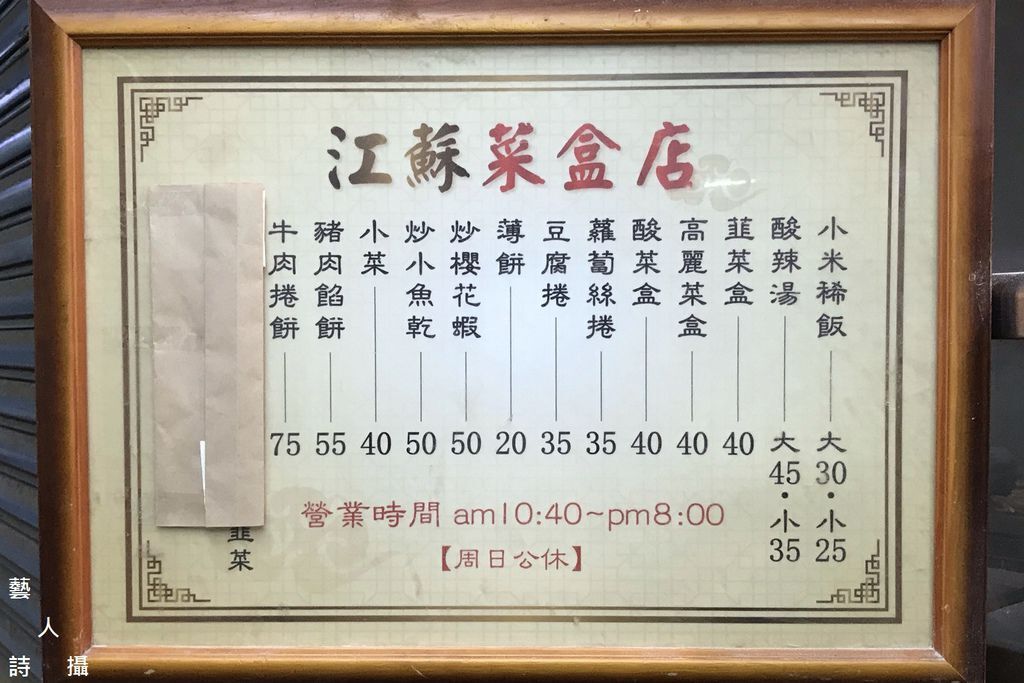 江蘇菜盒店
小米稀飯 大30・小25
酸辣湯 大45・小35
韮菜盒 40
高麗菜盒 40
酸菜盒 40
蘿蔔絲捲 35
豆腐捲 35
薄餅 20
炒櫻花蝦 50
炒小魚乾 50
小菜 40
豬肉餡餅 55
牛肉捲餅 75
韮菜
營業時間 am10:40~pm8:00
【周日公休】
藝人詩攝